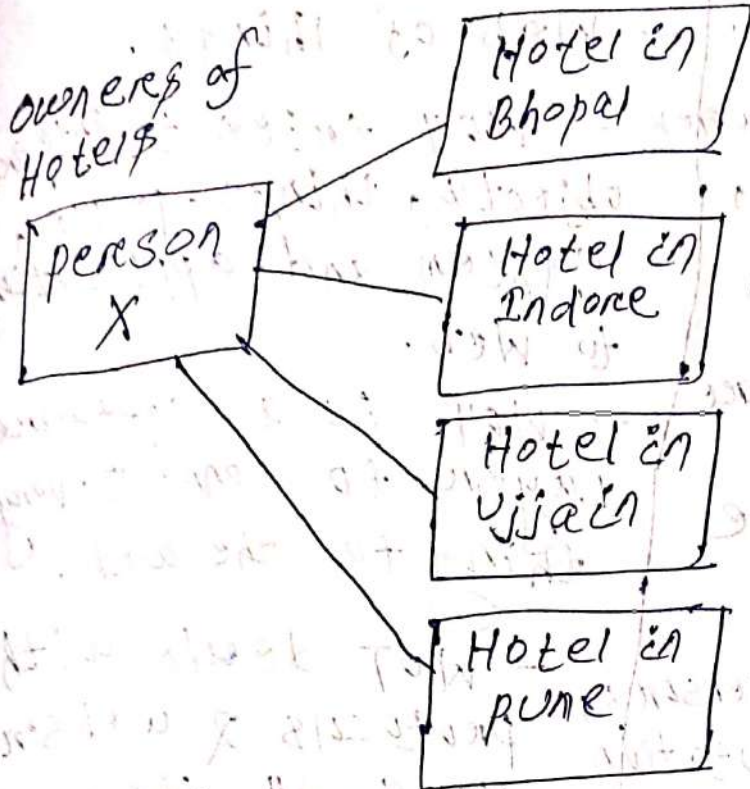 owners of
Hotels
person
X
Hotel in
Bhopal
Hotel in
Indore
Hotel in
Ujjain
Hotel in
pune